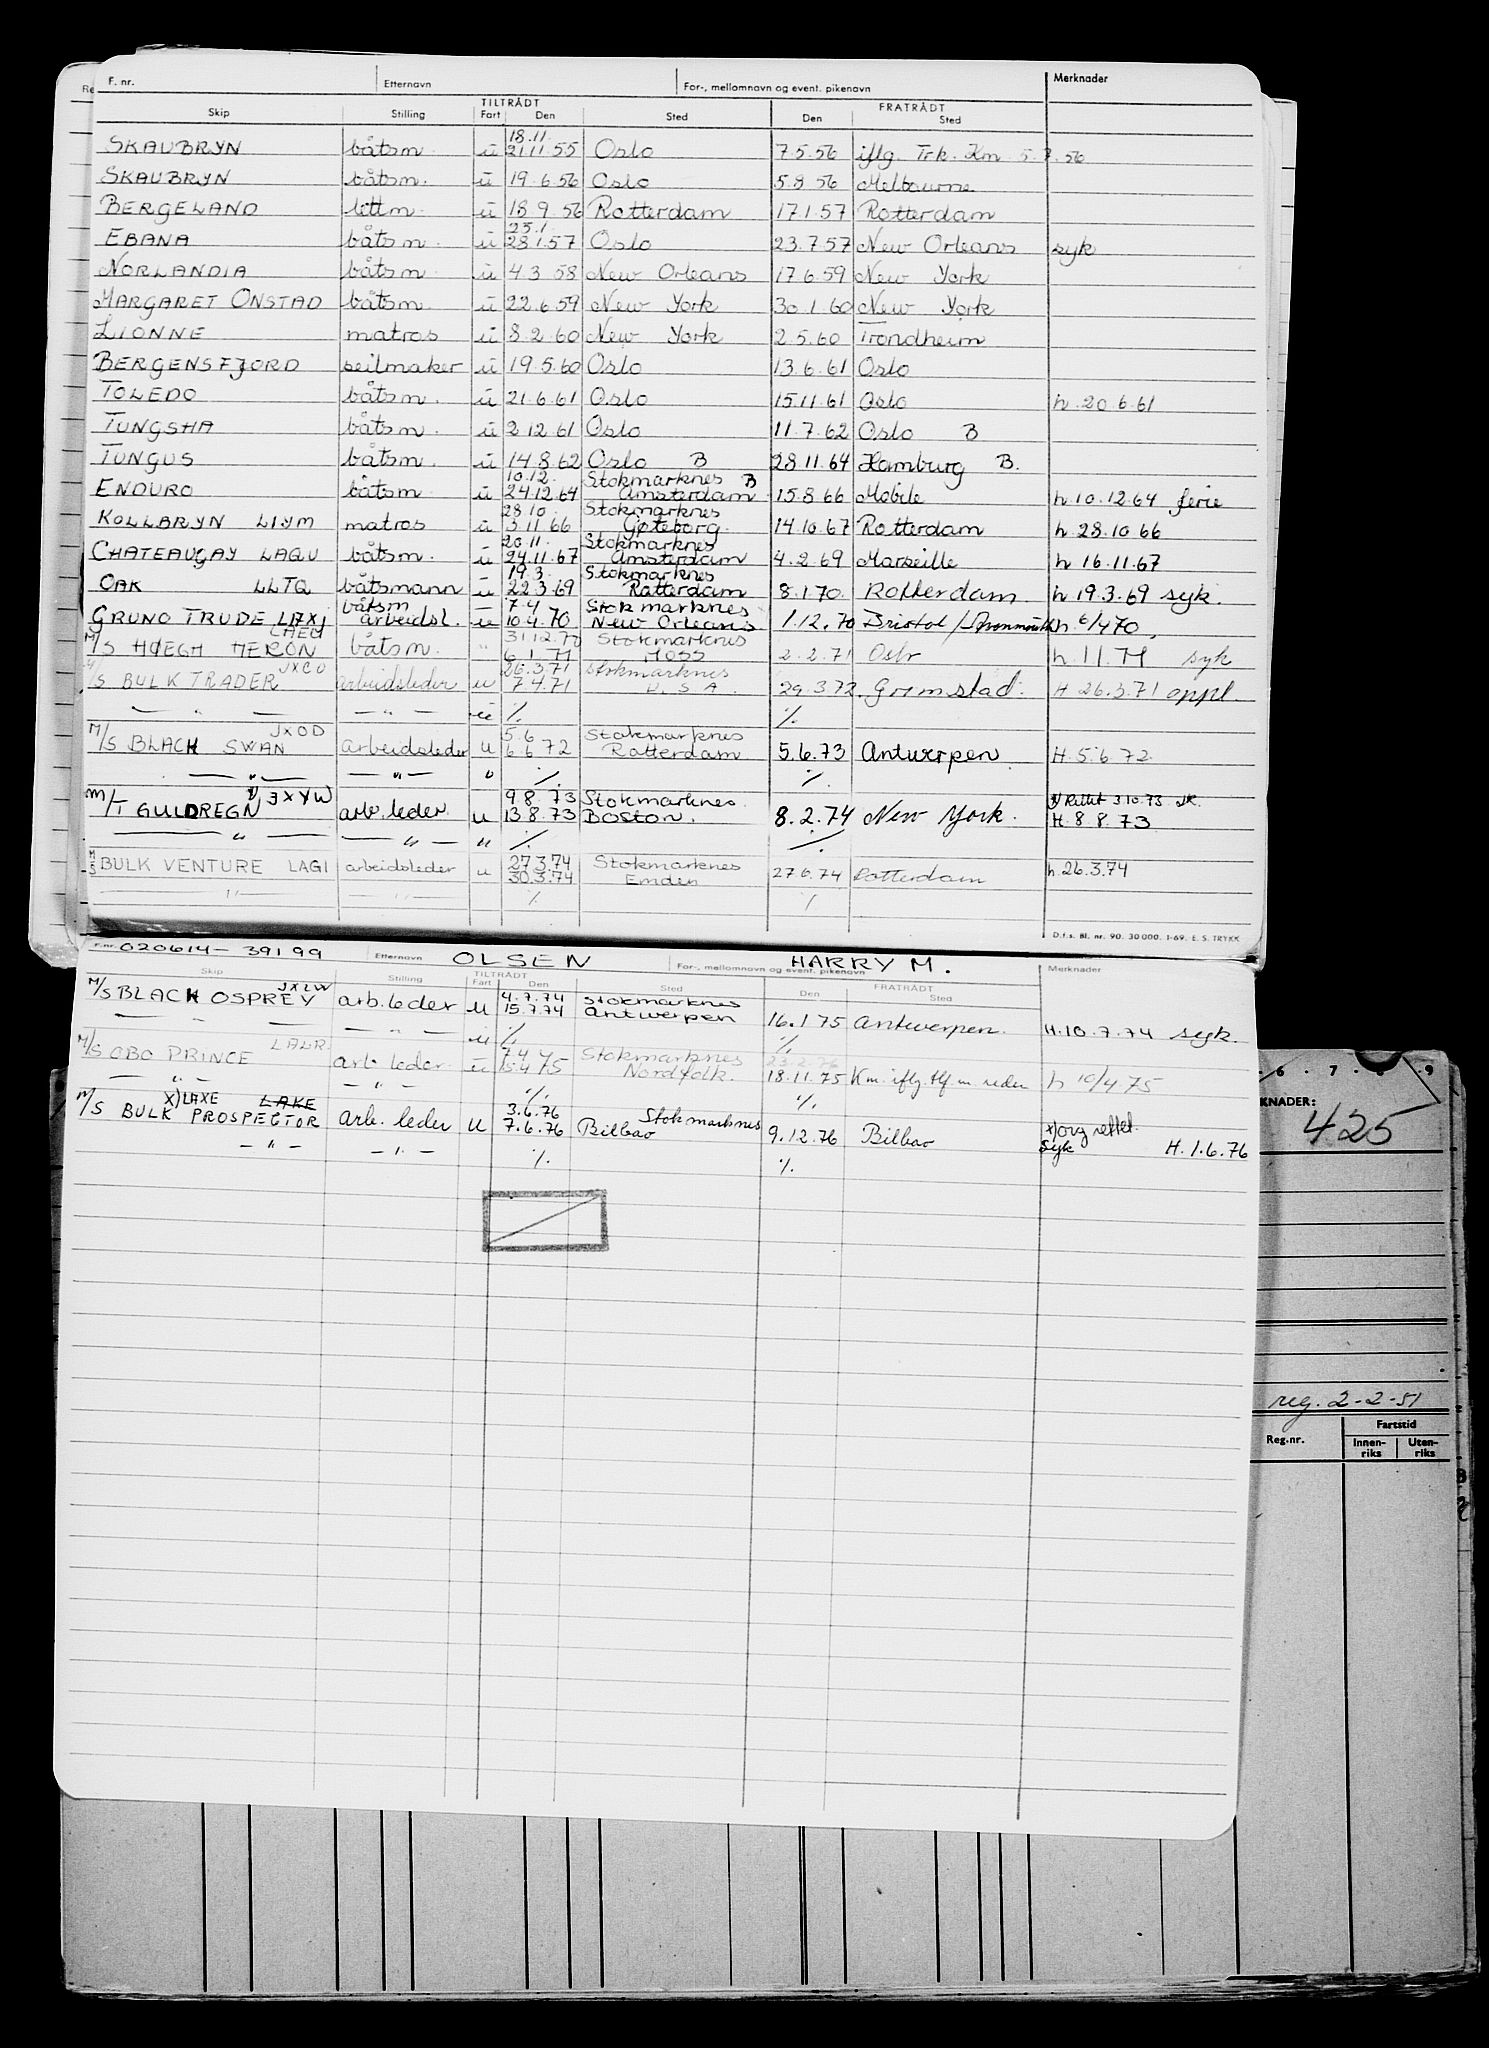 F. nr. Etternavn For-, mellomnavn og event. pikenavn Merknader
TILTRÅDT FRATRÅDT
Skip Stilling Fart Den Sted Den Sted
18.11.
SKAUBRYN båtsm. u 21.11.55 Oslo 7.5.56 iflg. Trk. Km. 5.7.56
SKAUBRYN båtsm. u 19.6.56 Oslo 5.8.56 Melbourne
BERGELAND lettm. u 18.9.56 Rotterdam 17.1.57 Rotterdam
25.1.
EBANA båtsm. u 28.1.57 Oslo 23.7.57 New Orleans syk
NORLANDIA båtsm. u 4.3.58 New Orleans 17.6.59 New York
MARGARET ONSTAD båtsm. u 22.6.59 New York 30.1.60 New York
LIONNE matros u 8.2.60 New York 2.5.60 Trondheim
BERGENSFJORD seilmaker u 19.5.60 Oslo 13.6.61 Oslo
TOLEDO båtsm. u 21.6.61 Oslo 15.11.61 Oslo h. 20.6.61
TUNGSHA båtsm. u 2.12.61 Oslo 11.7.62 Oslo B
TUNGUS båtsm. u 14.8.62 Oslo B 28.11.64 Hamburg B.
10.12. Stokmarknes B
ENDURO båtsm. u 24.12.64 Amsterdam 15.8.66 Mobile h. 10.12.64 ferie
28.10. Stokmarknes
KOLLBRYN LIYM matros u 3.11.66 Gøteborg. 14.10.67 Rotterdam h. 28.10.66
20.11. Stokmarknes
CHATEAUGAY LAQU båtsm. u 24.11.67 Amsterdam 4.2.69 Marseille h 16.11.67
19.3. Stokmarknes
OAK LLTQ båtsmann u 22.3.69 Rotterdam 8.1.70. Rotterdam h 19.3.69 syk.
båtsm 7.4 Stokmarknes
GRUNO TRUDE LAXJ arbeidsl. u 10.4.70 New Orleans 1.12.70 Bristol/Avonmouth h. 6/4 70
31.12.70 Stokmarknes
M/S HØEGH HERON båtsm. " 6.1.71 MOSS 2.2.71 Oslo h. 1.1.71 syk
JXCO 26.3.71 Stokmarknes
M/S BULK TRADER arbeidsleder u 7.4.71 U.S.A. 29.3.72. Grimstad. H 26.3.71 oppl.
— " — — " — u ./. ./.
JXOD 5.6 Stokmarknes
M/S BLACK SWAN arbeidsleder u 6.6.72 Rotterdam 5.6.73 Antwerpen H. 5.6.72
— " — — " — " ./. ./.
JXYW 9.8.73 Stokmarknes. x) Rettet 3.10.73
M/T GULDREGN arb. leder. u 13.8.73 BOSTON. 8.2.74 New York. H. 8.8.73
— " — — " — " ./. ./.
27.3.74 Stokmarknes
M/S BULK VENTURE LAGI arbeidsleder u 30.3.74 Emden 27.6.74 Rotterdam h. 26.3.74
— " — — " — ./. ./.
D.f.s. Bl. nr. 90. 30 000. 1-69. E. S. TRYKK
F.nr. 020614 - 39199 Etternavn OLSEN For-, mellomnavn og event. pikenavn HARRY M. Merknader
TILTRÅDT FRATRÅDT
Skip Stilling Fart Den Sted Den Sted
JXLW 4.7.74 Stokmarknes
M/S BLACK OSPREY arb.leder u 15.7.74 Antwerpen 16.1.75 Antwerpen. H. 10.7.74 syk.
— " — — " — u ./. ./.
LALR. 7.4 Stokmarknes 23.2.76
M/S OBO PRINCE arb. leder. u 15.4.75 Nordfolk. 18.11.75 Km. iflg. tlf. m. reder h 10/4.75
— " — — " — ./. ./.
X) LAXE LAKE 3.6.76 Stokmarknes x) org rettet.
M/S BULK PROSPECTOR arb. leder u 7.6.76 Bilbao 9.12.76 Bilbao syk H. 1.6.76
— " — — " — ./. ./.
6 . 7 . 8 . 9
KNADER:
425
reg. 2-2-51
Fartstid
Reg.nr. Innen-riks Uten-riks